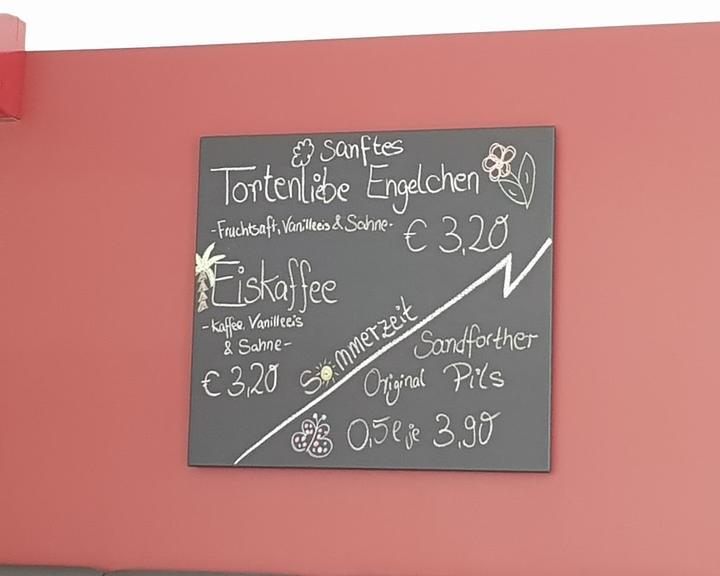 Sanftes
Tortenliebe Engelchen
-Fruchtsaft, Vanilleeis & Sahne-
€ 3,20
Eiskaffee
-Kaffee, Vanilleeis
& Sahne-
€ 3,20
Sommerzeit
Sandforther
Original Pils
0,5l je 3,90